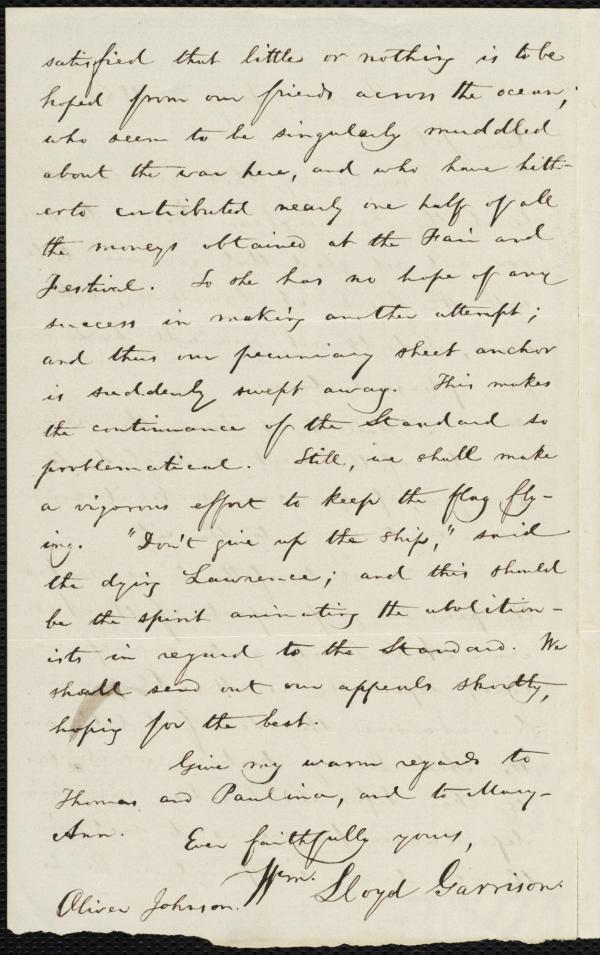 satisfied that little or nothing is to be
hoped from our friends across the ocean,
who seem to be singularly muddled
about the war here, and who have hith-
erto contributed nearly one half of all
the moneys obtained at the Fair and
Festival. So she has no hope of any
success in making another attempt;
and thus our pecuniary sheet anchor
is suddenly swept away. This makes
the continuance of the Standard so
problematical. Still, we shall make
a vigorous effort to keep the flag fly-
ing. "Don't give up the ship," said
the dying Lawrence; and this should
be the spirit animating the abolition-
ists in regard to the Standard. We
shall send out our appeals shortly,
hoping for the best.
Give my warm regards to
Thomas and Paulina, and to Mary-
Ann.
Ever faithfully yours,
Wm. Lloyd Garrison.
Oliver Johnson.